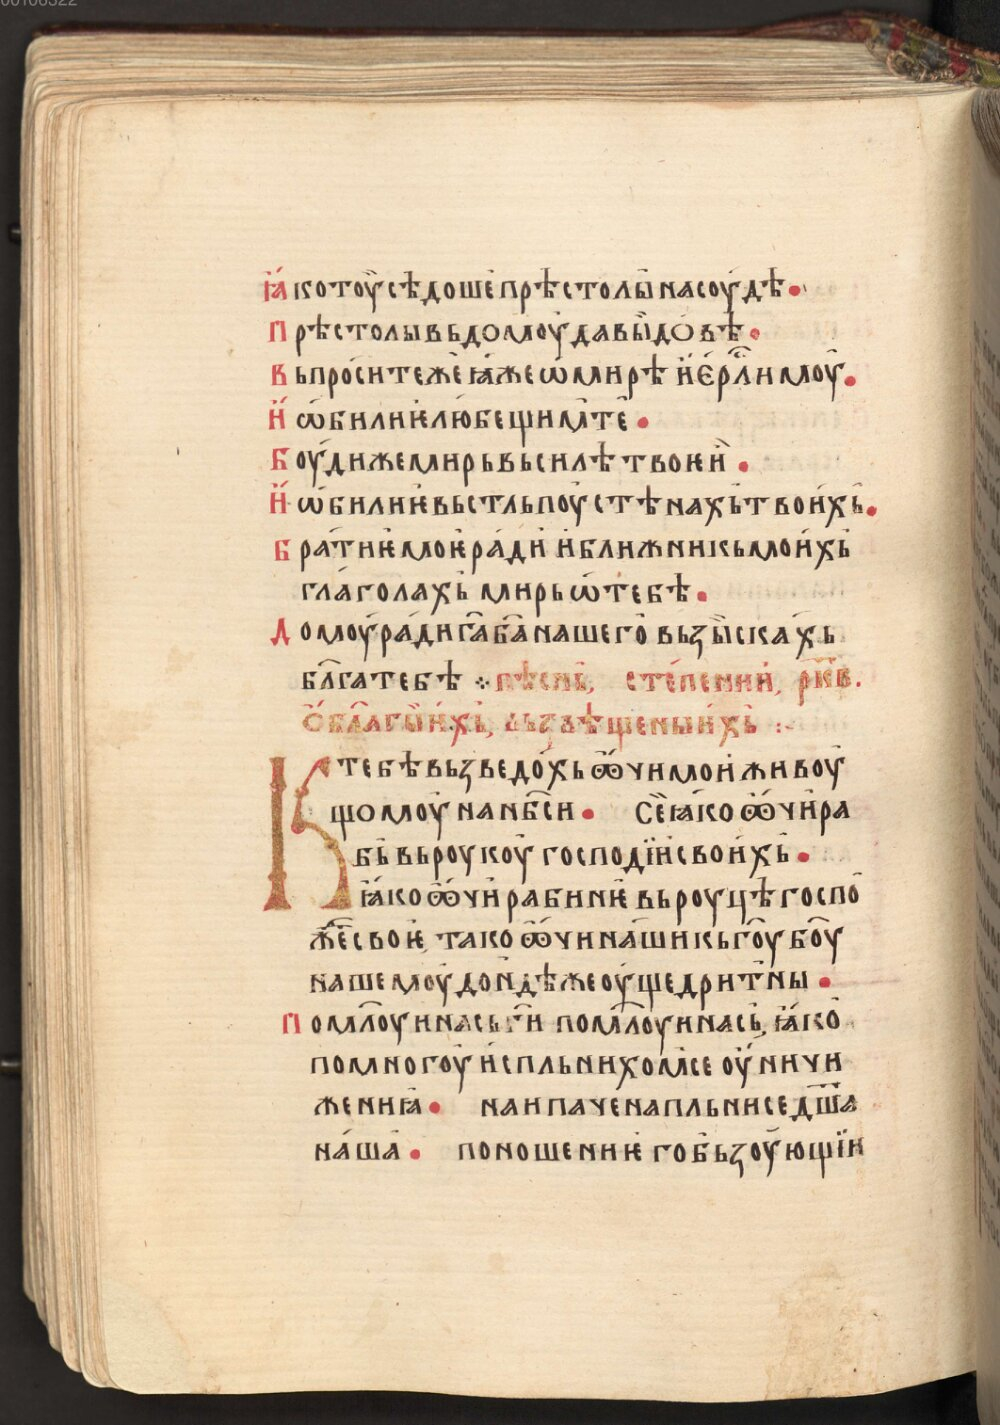 00106322
ꙗ҆ко тоу̀ сѣдоше̏ прѣстолы̏ на соу́дѣ •
прѣстолы вь домоу̀ давы̏дѡ́вѣ •
въпро́сите же̏ ꙗ҆́же ѡ҆ мирѣ и҆е҆рⷭ҇лимоу̀ •
и҆ ѡ҆билиѥ любещимь те •
боу́ди же мирь вь силѣ твоѥи̏ •
и҆ ѡ҆билиѥ вь стльпоу̀ стѣнахь̏ твои́хь •
бра́тиѥ моѥ ра́ди и҆ ближникь мои́хь
гла́голахь̏ мирь ѡ҆ тебѣ •
домоу̀ ра́ди га҃ ба҃ нашего̏ вьзы̏ска́хь
бл҃га тебѣ ⁘ пѣснь, сте́пенни, рк҃в.
ѡ҆ бл҃гы́и́хь, вьзвѣщеныи́хь :~
К тебѣ вьзведо́хь ѡ҆чи мои живоу̀
щомоу̀ на нб҃си • се̏ ꙗ҆ко ѡ҆чи̏ ра
бь̏ вь роукоу̀ господїи̏ свои́хь •
ꙗ҆ко ѡ҆чи̏ рабиниѥ вь роуцѣ госпо
же̏ своѥ, тако ѡ҆чи на́ши кь гоу҃ боу҃
нашемоу̀ до́ндѣже оу҆щедрить ны •
помлоуи нась ги҃ помлоуи нась, ꙗ҆ко̏
по многоу̀ и҆спльнихомсе оу҆ничи
жениꙗ • наипаче напльнисе дш҃а
на́ша • поношениѥ гобьзоу̀ющїи